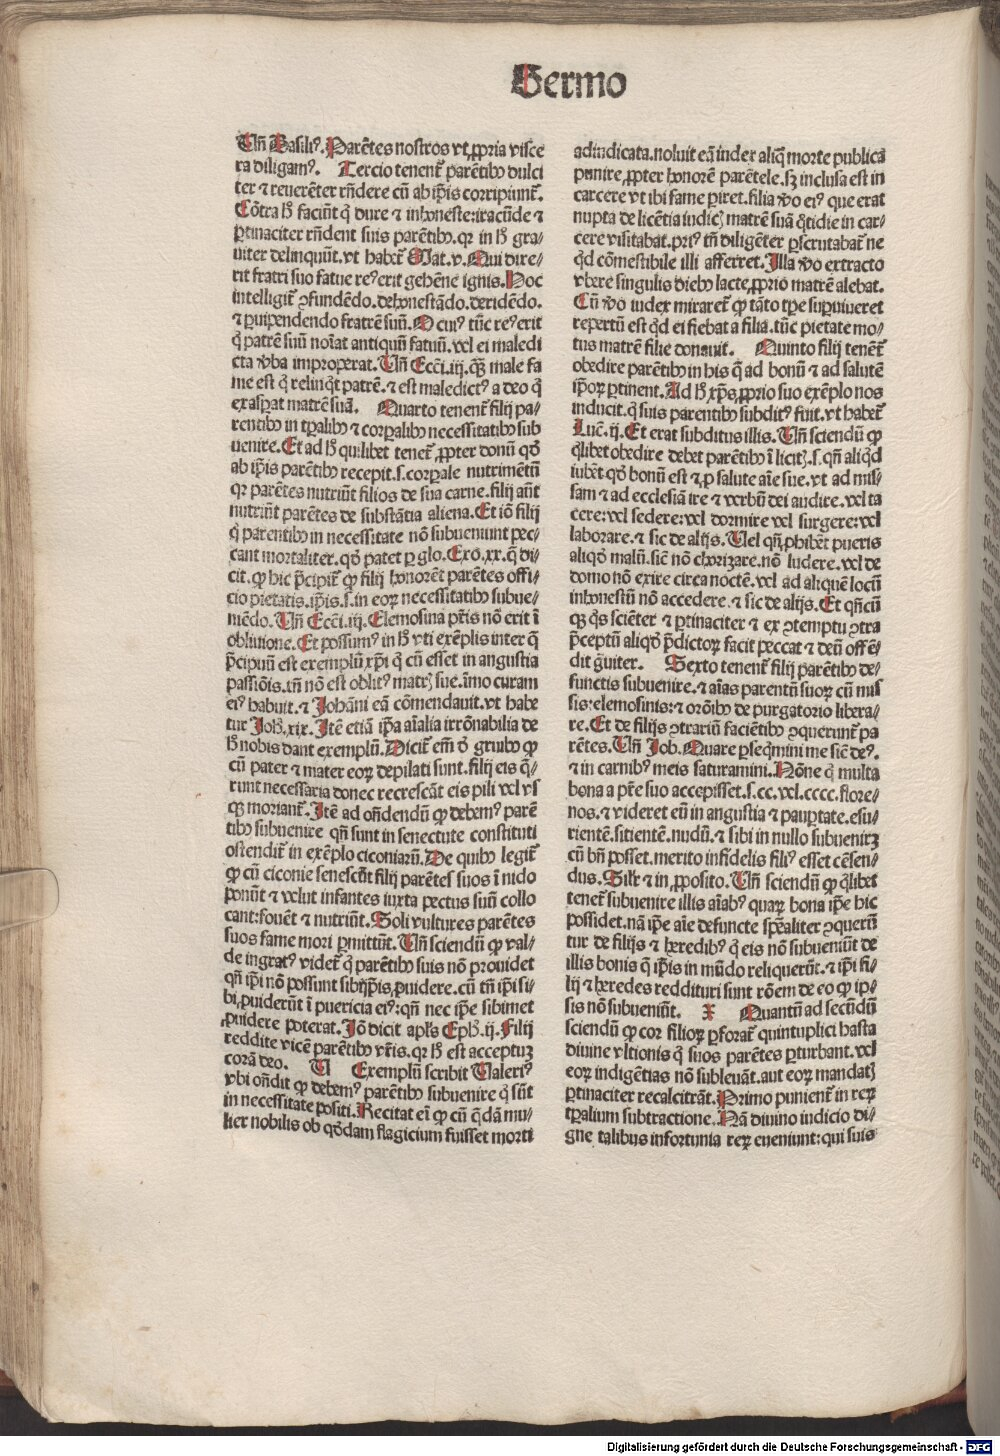 Sermo
Uñ Basiliꝰ. Parētes nostros vt ꝓpria visce
ra diligamꝰ. Tercio tenent᷑ parētibꝰ dulci
ter ⁊ reuerēter rñdere cū ab ip̄is corripiunt᷑.
Cōtra hͦ faciūt q̄ dure ⁊ inhoneste: iracūde ⁊
ꝑtinaciter rñdent suis parētibꝰ. qꝛ in hͦ gra-
uiter delinquūt. vt habet᷑ Mat. v. Qui dixe-
rit fratri suo fatue reꝰ erit gehēne ignis. Hoc
intelligit᷑ ↄfundēdo. dehonestādo. deridēdo.
⁊ ꝑuipendendo fratrē suū. O cuiꝰ tūc reꝰ erit
q̄ patrē suū noīat antiquū fatuū. vel ei maledi
cta v̓ba improperat. Uñ Ecci. iij. qꝫ̄ male fa
me est q̄ relinq̄t patrē. ⁊ est maledictꝰ a deo q̄
exasꝑat matrē suā. Quarto tenent᷑ filij pa-
rentibꝰ in tꝑalibꝰ ⁊ corꝑalibꝰ necessitatibꝰ sub
uenire. Et ad hͦ quilibet tenet᷑ ꝓpter donū qd̓
ab ip̄is parētibꝰ recepit. s. corꝑale nutrimētū
qꝛ parētes nutriūt filios de sua carne. filij aūt
nutriūt parētes de substātia aliena. Et iō filij
q̄ parentibꝰ in necessitate nō subueniunt pec-
cant mortaliter. qd̓ patet ꝑ glo. Exo. xx. q̄ di-
cit. ꝙ hic p̄cipit᷑ ꝙ filij honorēt parētes offi-
cio pietatis. ip̄is. s. in eoꝝ necessitatibꝰ subue-
niēdo. Uñ Ecci. iij. Elemosina pr̄is nō erit ī
obliuione. Et possumꝰ in hͦ vti exēplis inter q̄
p̄cipuū est exemplū xp̄i q̄ cū esset in angustia
passiōis. tñ nō est oblitꝰ matrꝭ sue. īmo curam
eiꝰ habuit. ⁊ Johāni eā cōmendauit. vt habe
tur Joh̓. xix. Itē etiā ip̄a aīalia irrōnabilia de
hͦ nobis dant exemplū. Dicit᷑ em̄ d̓ gruibꝰ ꝙ
cū pater ⁊ mater eoꝝ depilati sunt. filij eis q̄-
runt necessaria donec recrescāt eis pili vel vs
qꝫ moriant᷑. Itē ad oñdendū ꝙ debemꝰ parē
tibꝰ subuenire qñ sunt in senectute constituti
ostendit᷑ in exēplo ciconiarū. De quibꝰ legit᷑
ꝙ cū ciconie senescūt filij parētes suos ī nido
ponūt ⁊ velut infantes iuxta pectus suū collo
cant: fouēt ⁊ nutriūt. Soli vultures parētes
suos fame mori ꝑmittūt. Uñ sciendū ꝙ val-
de ingratꝰ videt᷑ q̄ parētibꝰ suis nō prouidet
qñ ip̄i nō possunt sibijp̄is ꝓuidere. cū tñ ip̄i si-
bi ꝓuiderūt ī puericia eiꝰ: qñ nec ip̄e sibimet
ꝓuidere poterat. Iō dicit apl̓s Eph̓. ij. Filij
reddite vicē parētibꝰ vr̄is. qꝛ hͦ est acceptuꝫ
corā deo. U Exemplū scribit Ualeriꝰ
vbi oñdit ꝙ debemꝰ parētibꝰ subuenire q̄ sūt
in necessitate positi. Recitat eī ꝙ cū q̄dā mu-
lier nobilis ob qd̓dam flagicium fuisset morti
adiudicata. noluit eā iudex aliq̄ morte publica
punire ꝓpter honorē parētele. sꝫ inclusa est in
carcere vt ibi fame ꝑiret. filia v̓o eiꝰ que erat
nupta de licētia iudicꝭ matrē suā q̄tidie in car-
cere visitabat. priꝰ tñ diligēter ꝑscrutabat᷑ ne
qd̄ cōmestibile illi afferret. Illa v̓o extracto
vbere singulis diebꝰ lacte ꝓprio matrē alebat.
Cū v̓o iudex miraret᷑ ꝙ tāto tꝑe suꝑuiueret
repertū est qd̄ ei fiebat a filia. tūc pietate mo-
tus matrē filie donauit. Quinto filij tenent᷑
obedire parētibꝰ in his q̄ ad bonū ⁊ ad salutē
ip̄oꝝ ꝑtinent. Ad hͦ xp̄s ꝓprio suo exēplo nos
inducit. q̄ suis parentibꝰ subditꝰ fuit. vt habet᷑
Luc̄. ij. Et erat subditus illis. Uñ sciendū ꝙ
q̄libet obedire debet parētibꝰ ī licitꝭ. s. qñ aliqd̄
iubēt qd̓ bonū est ⁊ ꝓ salute aīe sue. vt ad mis-
sam ⁊ ad ecclesiā ire ⁊ verbū dei audire. vel ta
cere: vel sedere: vel dormire vel surgere: vel
laborare. ⁊ sic de alijs. Uel qñ ꝓhibēt pueris
aliqd̓ malū. sic̄ nō chorizare. nō ludere. vel de
domo nō exire circa noctē. vel ad aliquē locū
inhonestū nō accedere. ⁊ sic de alijs. Et qñcū
qꝫ q̄s sciēter ⁊ ꝑtinaciter ⁊ ex ↄtemptu ↄtra
p̄ceptū aliqd̓ p̄dictoꝝ facit peccat ⁊ deū offē-
dit gͣuiter. Sexto tenent᷑ filij parētibꝰ de-
functis subuenire. ⁊ aīas parentū suoꝝ cū mis
sis: elemosinis: ⁊ orōibꝰ de purgatorio libera-
re. Et de filijs ↄtrariū faciētibꝰ ↄquerunt᷑ pa
rētes. Uñ Job. Quare ꝑseq̄mini me sic̄ deꝰ.
⁊ in carnibꝰ meis saturamini. Nōne q̄ multa
bona a pr̄e suo accepisset. s. cc. vel. cccc. flore-
nos. ⁊ videret eū in angustia ⁊ pauꝑtate. esu-
rientē. sitientē. nudū. ⁊ sibi in nullo subueniꝫ
cū bñ posset. merito infidelis filiꝰ esset cēsen-
dus. Sil̓r ⁊ in ꝓposito. Uñ sciendū ꝙ q̄libet
tenet᷑ subuenire illis aīabꝰ quaꝝ bona ip̄e hic
possidet. nā ip̄e aīe defuncte sp̄ealiter ↄquerū
tur de filijs ⁊ heredibꝰ q̄ eis nō subueniūt de
illis bonis q̄ ip̄is in mūdo reliquerūt. ⁊ ip̄i fi-
lij ⁊ heredes reddituri sunt rōem de eo ꝙ ip-
sis nō subueniūt. X Quantū ad secūdū
sciendū ꝙ cor filioꝝ ꝑforat᷑ quintuplici hasta
diuine vltionis q̄ suos parētes ꝑturbant. vel
eoꝝ indigētias nō subleuāt. aut eoꝝ mandatꝭ
ꝑtinaciter recalcitrāt. Primo punient᷑ in reꝝ
tꝑalium subtractione. Nā diuino iudicio di-
gne talibus infortunia reꝝ eueniunt: qui suis
Digitalisierung gefördert durch die Deutsche Forschungsgemeinschaft - DFG